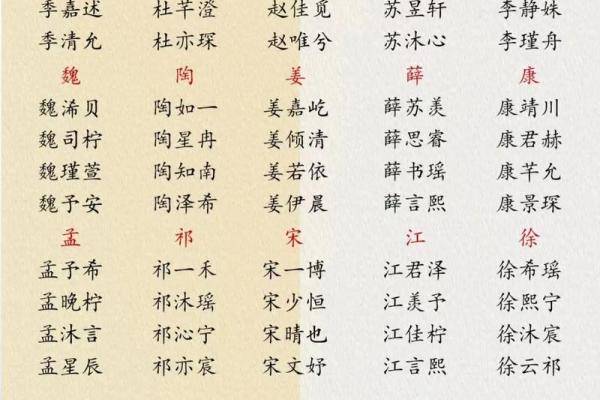 季嘉述 杜芊澄 赵佳觅 苏昱轩 李静姝
季清允 杜亦琛 赵唯兮 苏沐心 李瑾舟
魏 陶 姜 薛 康
魏浠贝 陶如一 姜嘉屹 薛苏羡 康靖川
魏司柠 陶星冉 姜倾清 薛思睿 康君赫
魏瑾萱 陶知南 姜若依 薛书瑶 康芊允
魏予安 陶泽希 姜伊晨 薛言熙 康景琛
孟 祁 宋 江 徐
孟予希 祁一禾 宋一博 江君泽 徐希瑶
孟晚柠 祁沐瑶 宋少恒 江羡予 徐熙宁
孟沐言 祁沁宁 宋晴也 江佳柠 徐沐宸
孟星辰 祁亦宸 宋文妤 江言熙 徐云祁